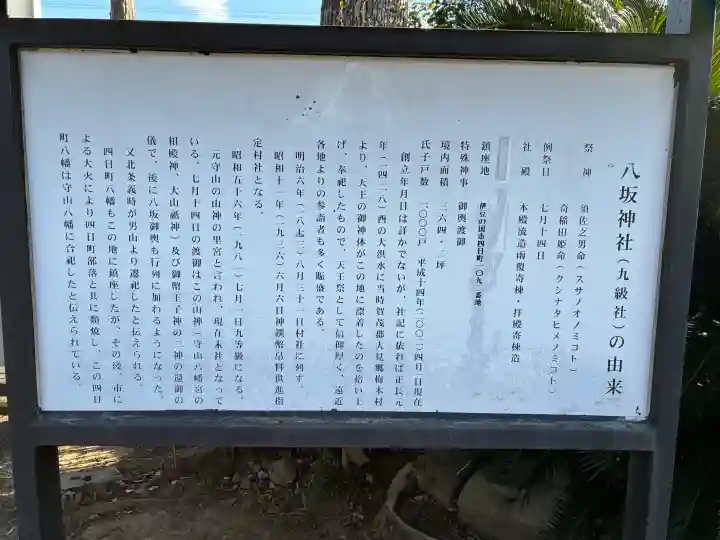 八坂神社(九級社)の由来
祭神 須佐之男命(スサノオノミコト)
奇稲田姫命(クシナダヒメノミコト)
例祭日 七月十四日
社殿 本殿流造雨覆寄棟・拝殿寄棟造
鎮座地 伊豆の国市四日町一〇九一番地
特殊神事 御輿渡御
境内面積 三六四・二坪
氏子戸数 二〇〇戸 平成十四年(二〇〇二)四月一日現在
創立年月日は詳かでないが、社記に依れば正長元
年(一四二八)酉の大洪水に当時賀茂郡大見郷梅木村
より、天王の御神体がこの地に漂着したのを拾い上
げ、奉祀したもので、天王祭として信仰厚く、遠近
各地よりの参詣者も多く賑盛である。
明治六年(一八七三)八月三十一日村社に列す。
昭和十一年(一九三六)六月六日神饌幣帛料供進指
定村社となる。
昭和五十六年(一九八一)七月一日九等級になる。
元守山の山神の里宮と言われ、現在末社となって
いる。七月十四日の渡御はこの山神(守山八幡宮の
相殿神、大山祇神)及び御幣王子神の二神の還御の
儀で、後に八坂御輿も行列に加わるようになった。
又北条義時が男山より遷祀したと伝えられる。
四日町八幡もこの地に鎮座したが、その後、市に
よる大火により四日町部落と共に類焼し、この四日
町八幡は守山八幡に合祀したと伝えられている。